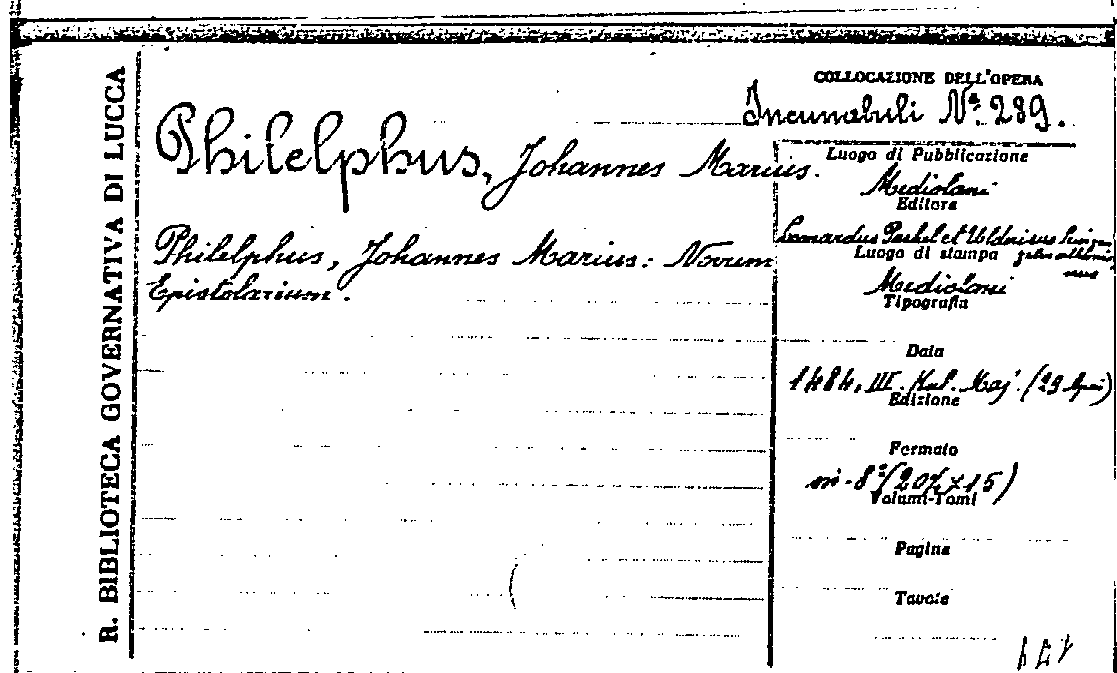 R. BIBLIOTECA GOVERNATIVA DI LUCCA
COLLOCAZIONE DELL'OPERA
Incunabuli Nº. 289.
Philelphus, Johannes Marius.
Philelphus, Johannes Marius: Novum
Epistolarium.
Luogo di Pubblicazione
Mediolani
Editore
Leonardus Pachel et Uldericus
Luogo di stampa
Mediolani
Tipografia
Data
1484, III. Kal. Maj. (29
Edizione
Formato
in-8º (20½ x 15)
Volumi-Tomi
Pagine
Tavole